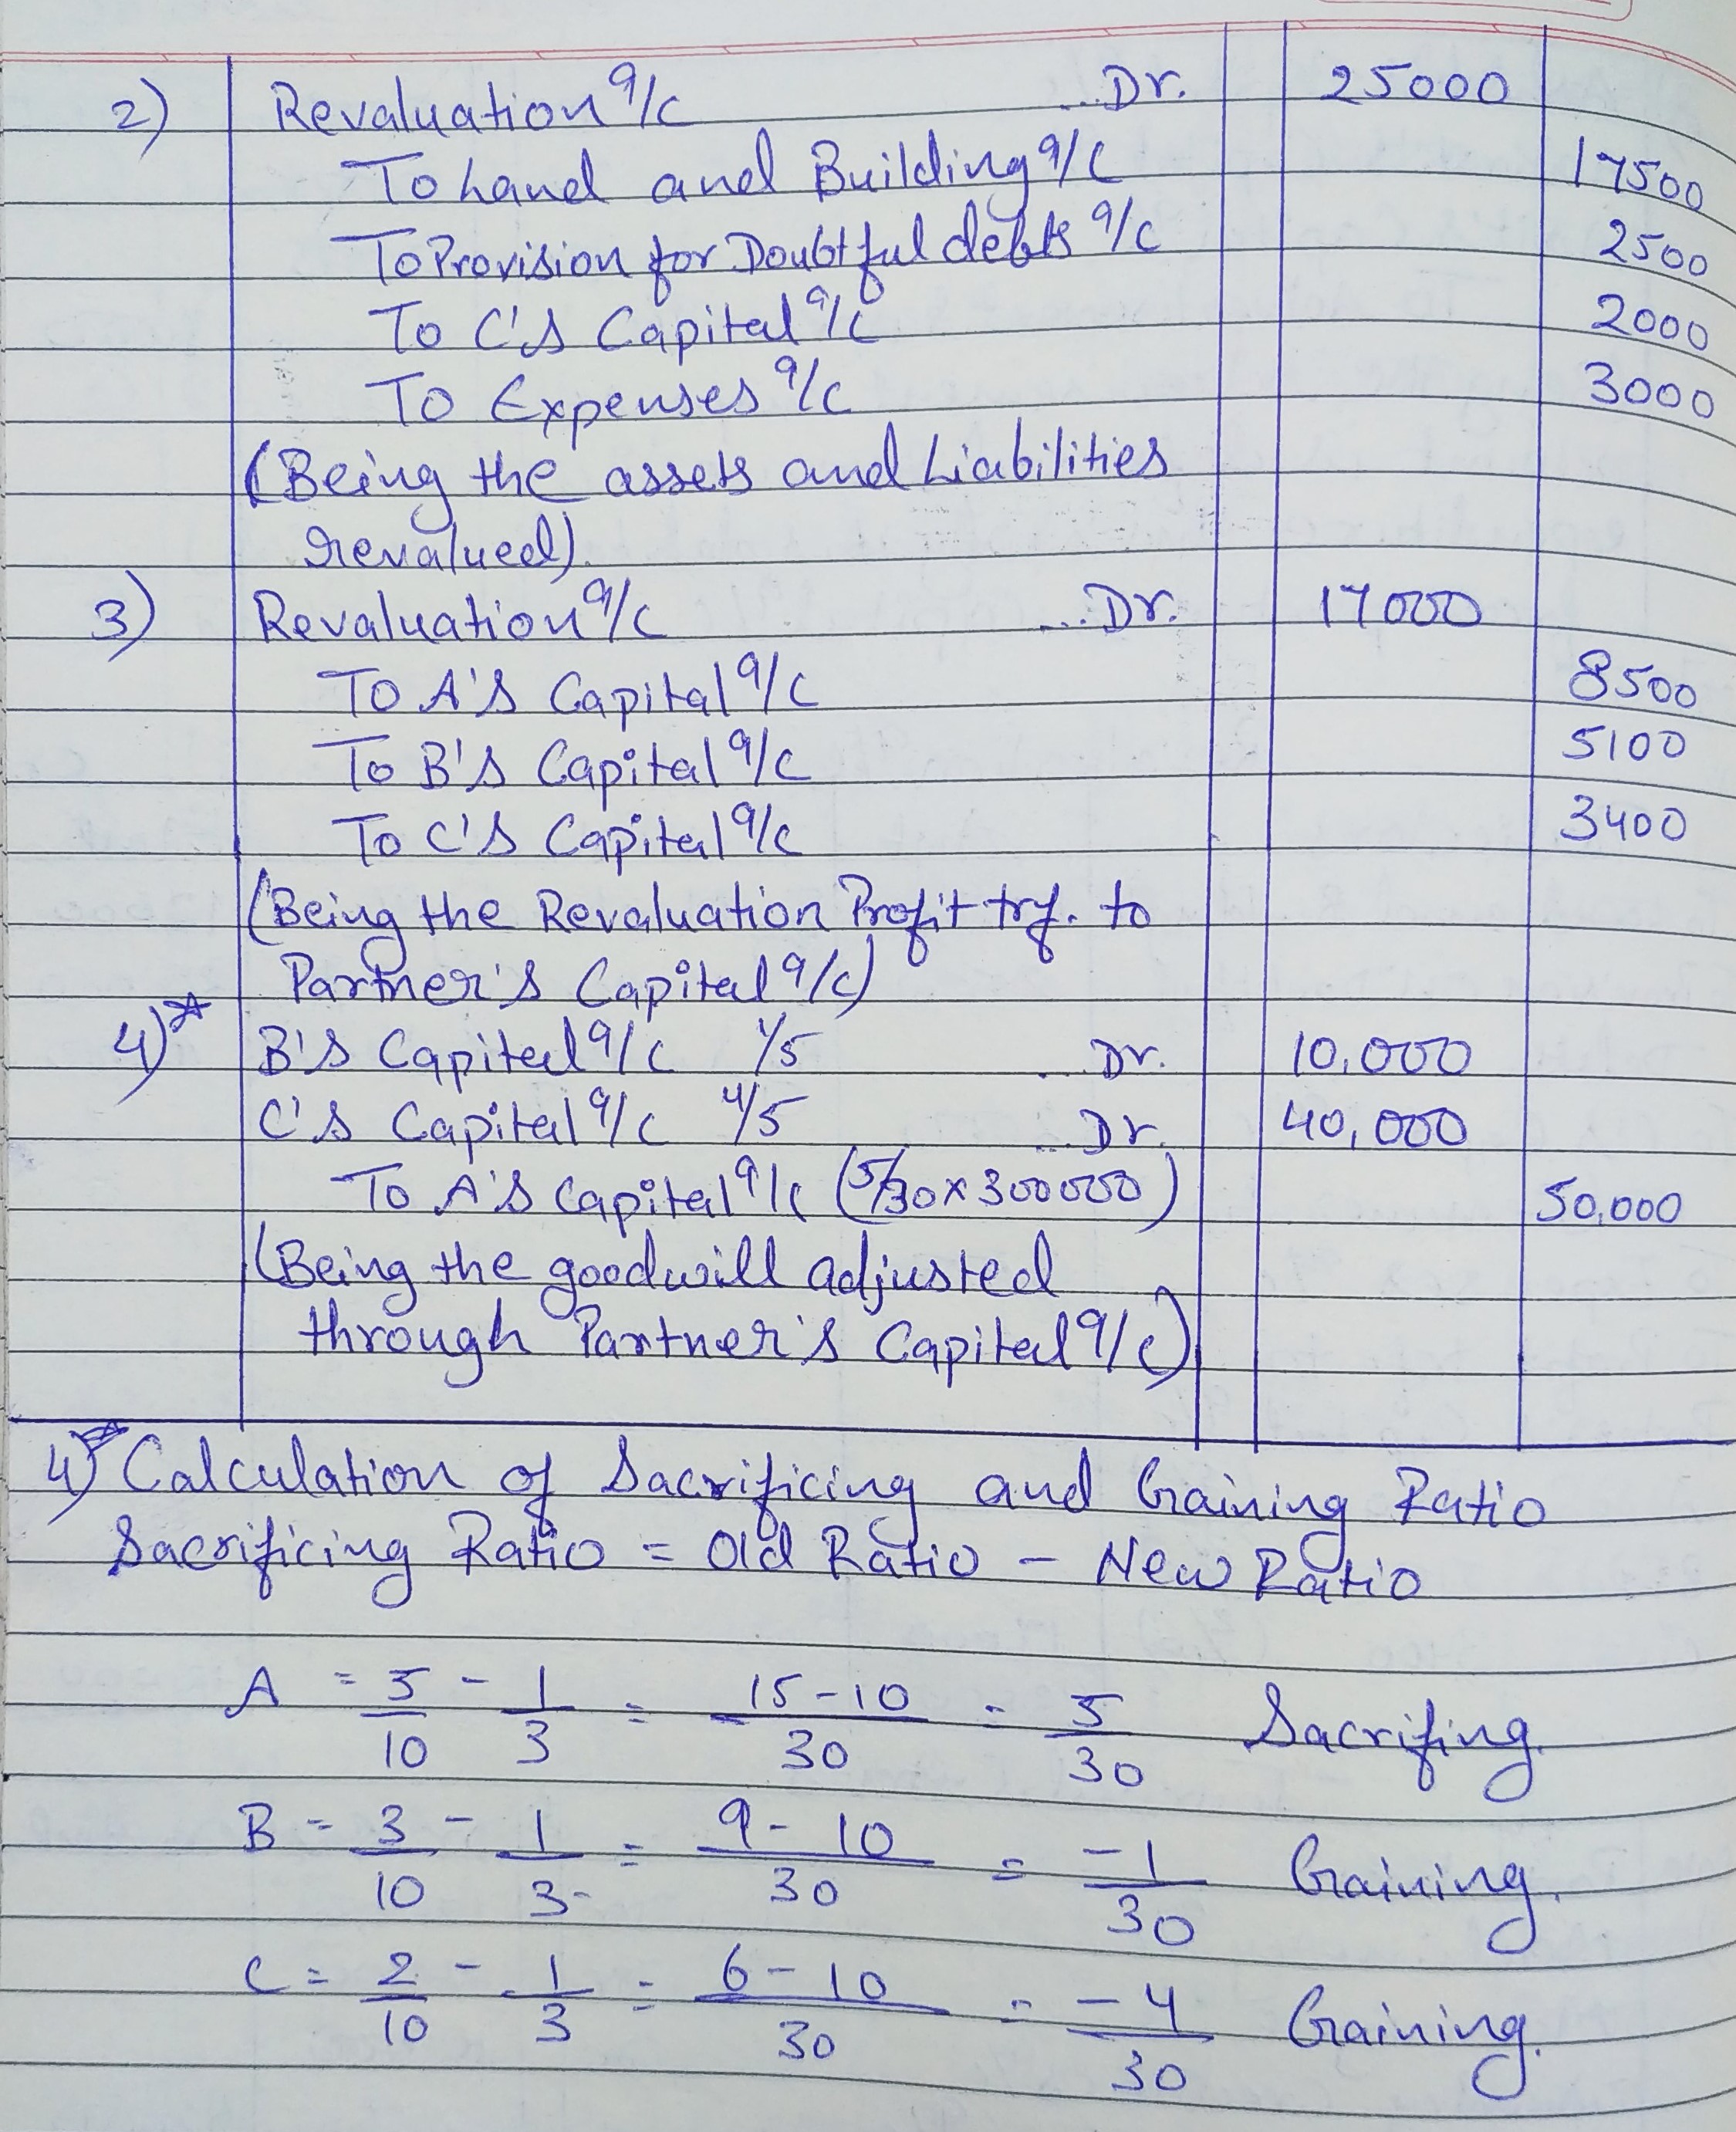 2) Revaluation a/c ...Dr. 25000
To Land and Building a/c 17500
To Provision for Doubtful debts a/c 2500
To C's Capital a/c 2000
To Expenses a/c 3000
(Being the assets and Liabilities
revalued)
3) Revaluation a/c ...Dr. 17000
To A's Capital a/c 8500
To B's Capital a/c 5100
To C's Capital a/c 3400
(Being the Revaluation Profit trf. to
Partner's Capital a/c)
4)* B's Capital a/c 1/5 .. Dr. 10,000
C's Capital a/c 4/5 ..Dr. 40,000
To A's Capital a/c (5/30 x 300000) 50,000
(Being the goodwill adjusted
through Partner's Capital a/c)
4)* Calculation of Sacrificing and Gaining Ratio
Sacrificing Ratio = Old Ratio - New Ratio
A = 5/10 - 1/3 = 15-10/30 = 5/30 Sacrifing.
B = 3/10 - 1/3 = 9-10/30 = -1/30 Gaining.
C = 2/10 - 1/3 = 6-10/30 = -4/30 Gaining.